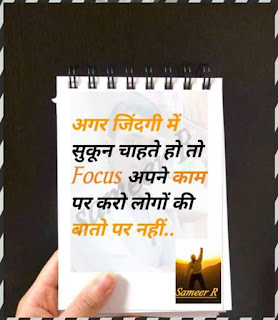 अगर जिंदगी में
सुकून चाहते हो तो
Focus अपने काम
पर करो लोगों की
बातो पर नहीं..
sameer R
Sameer R